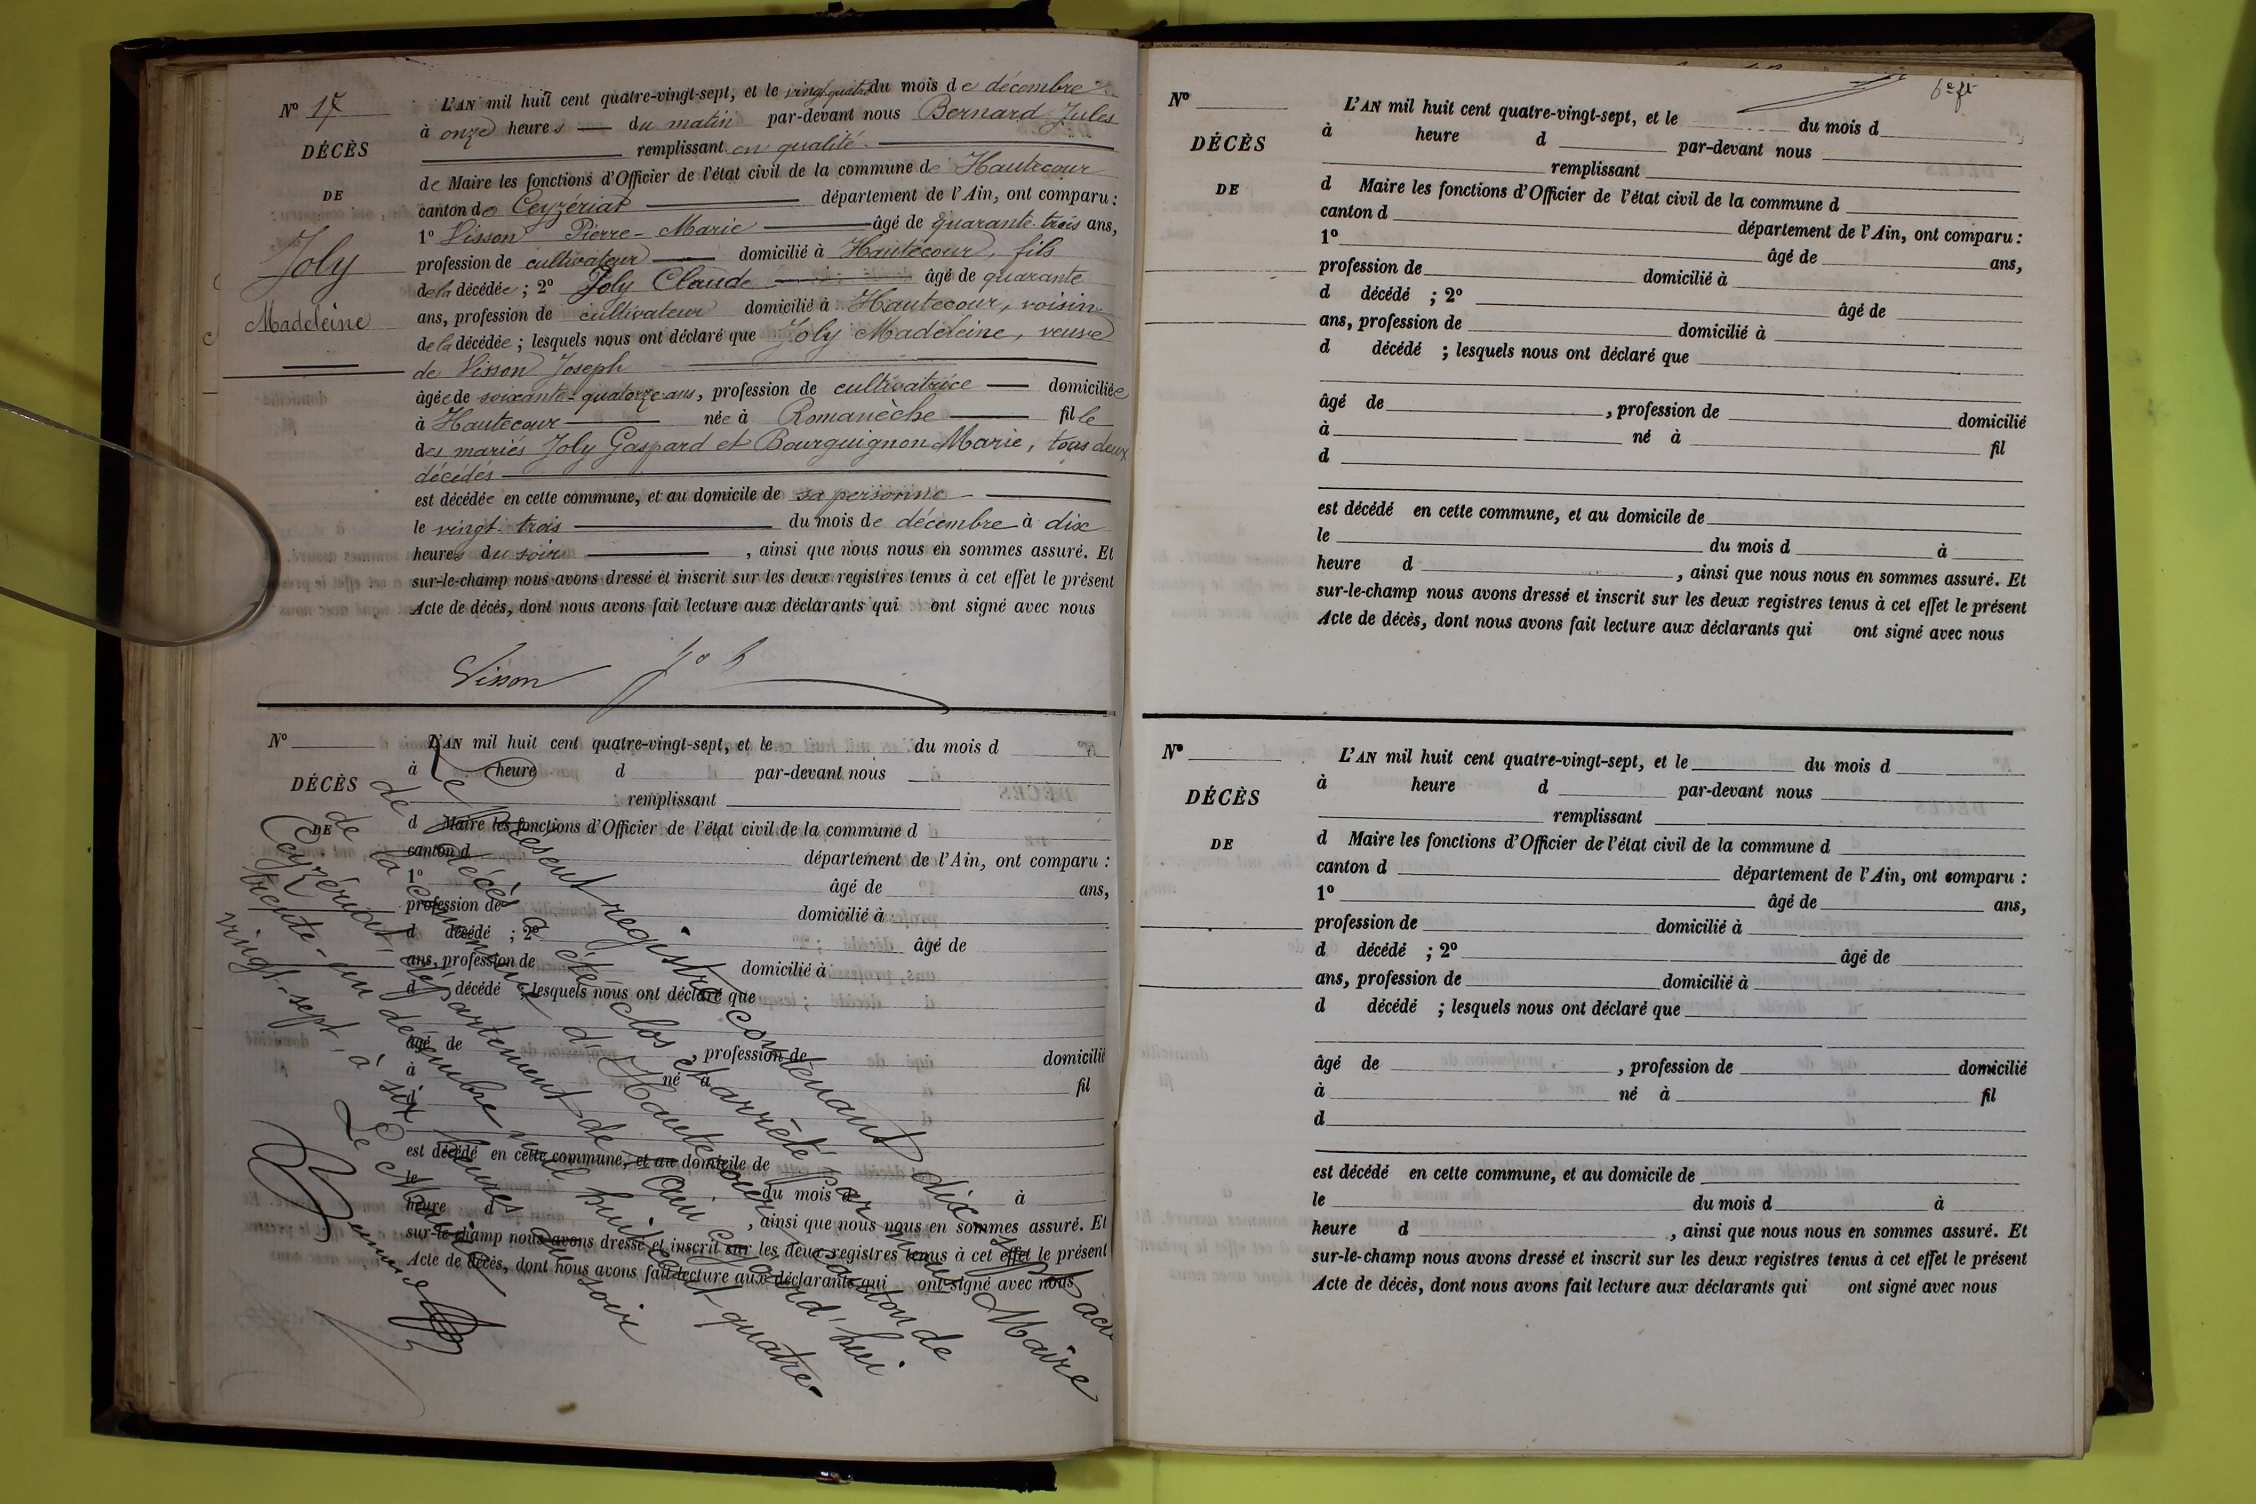 Nº 17
DÉCÈS
DE
Joly
Madeleine
L'AN mil huit cent quatre-vingt-sept, et le vingt-quatre du mois de décembre
à onze heures du matin par-devant nous Bernard Jules
remplissant en qualité
de Maire les fonctions d'Officier de l'état civil de la commune de Hautecour
canton de Ceyzériat département de l'Ain, ont comparu :
1º Visson Pierre-Marie âgé de quarante-trois ans,
profession de cultivateur domicilié à Hautecour, fils
de la décédée ; 2º Joly Claude âgé de quarante
ans, profession de cultivateur domicilié à Hautecour, voisin
de la décédée ; lesquels nous ont déclaré que Joly Madeleine, veuve
de Visson Joseph
âgée de soixante-quatorze ans, profession de cultivatrice domiciliée
à Hautecour née à Romanèche fille
des mariés Joly Gaspard et Bourguignon Marie, tous deux
décédés
est décédée en cette commune, et au domicile de sa personne
le vingt-trois du mois de décembre à dix
heures du soir , ainsi que nous nous en sommes assuré. Et
sur-le-champ nous avons dressé et inscrit sur les deux registres tenus à cet effet le présent
Acte de décès, dont nous avons fait lecture aux déclarants qui ont signé avec nous
Visson
Nº
DÉCÈS
DE
L'AN mil huit cent quatre-vingt-sept, et le du mois d
à heure d par-devant nous
remplissant
d Maire les fonctions d'Officier de l'état civil de la commune d
canton d département de l'Ain, ont comparu :
1º âgé de ans,
profession de domicilié à
d décédé ; 2º âgé de
ans, profession de domicilié à
d décédé ; lesquels nous ont déclaré que
âgé de , profession de domicilié
à né à fil
d
est décédé en cette commune, et au domicile de
le du mois d à
heure d , ainsi que nous nous en sommes assuré. Et
sur-le-champ nous avons dressé et inscrit sur les deux registres tenus à cet effet le présent
Acte de décès, dont nous avons fait lecture aux déclarants qui ont signé avec nous
Le présent registre contenant dix sept acte
de Décès a été clos et arrêté par nous Maire
de la commune d'Hautecour canton de
Ceyzériat département de l'Ain cejourd'hui
trente-un décembre mil huit cent quatre-
vingt-sept, à six heures du soir
Le Maire
Bernard
Nº
DÉCÈS
DE
L'AN mil huit cent quatre-vingt-sept, et le du mois d
à heure d par-devant nous
remplissant
d Maire les fonctions d'Officier de l'état civil de la commune d
canton d département de l'Ain, ont comparu :
1º âgé de ans,
profession de domicilié à
d décédé ; 2º âgé de
ans, profession de domicilié à
d décédé ; lesquels nous ont déclaré que
âgé de , profession de domicilié
à né à fil
d
est décédé en cette commune, et au domicile de
le du mois d à
heure d , ainsi que nous nous en sommes assuré. Et
sur-le-champ nous avons dressé et inscrit sur les deux registres tenus à cet effet le présent
Acte de décès, dont nous avons fait lecture aux déclarants qui ont signé avec nous
Nº
DÉCÈS
DE
L'AN mil huit cent quatre-vingt-sept, et le du mois d
à heure d par-devant nous
remplissant
d Maire les fonctions d'Officier de l'état civil de la commune d
canton d département de l'Ain, ont comparu :
1º âgé de ans,
profession de domicilié à
d décédé ; 2º âgé de
ans, profession de domicilié à
d décédé ; lesquels nous ont déclaré que
âgé de , profession de domicilié
à né à fil
d
est décédé en cette commune, et au domicile de
le du mois d à
heure d , ainsi que nous nous en sommes assuré. Et
sur-le-champ nous avons dressé et inscrit sur les deux registres tenus à cet effet le présent
Acte de décès, dont nous avons fait lecture aux déclarants qui ont signé avec nous